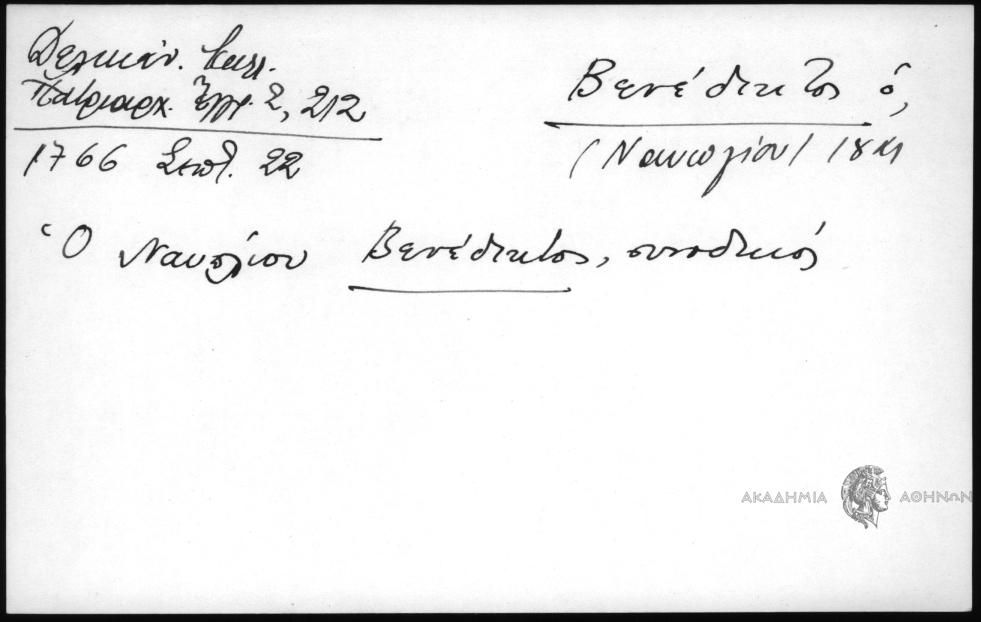 Δελικάν. Καλλ.
Πατριαρχ. Ἔγγρ. 2, 212
1766 Σεπτ. 22
Βενέδικτος ὁ,
(Ναυπλίου) 18
Ὁ Ναυπλίου Βενέδικτος, συνοδικός
ΑΚΑΔΗΜΙΑ ΑΘΗΝΩΝ